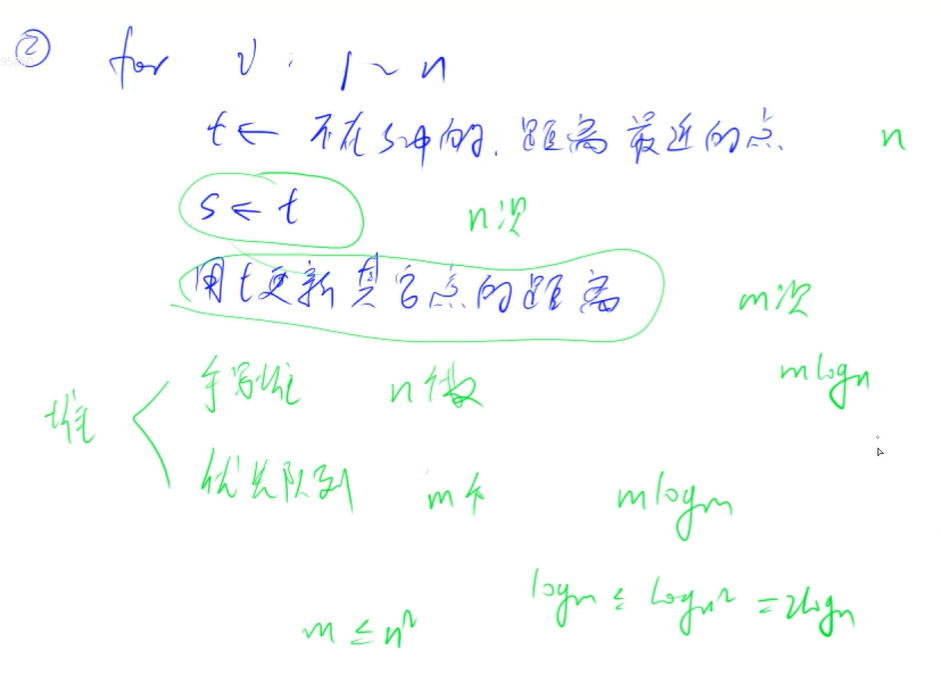 ② for v : 1 ~ n
t ← 不在s中的, 距离最近的点. n
s ← t n次
用t更新其它点的距离 m次
mlogn
手写堆 n个数
堆
优先队列 m个 mlogm
logm ≤ logn² = 2logn
m ≤ n²